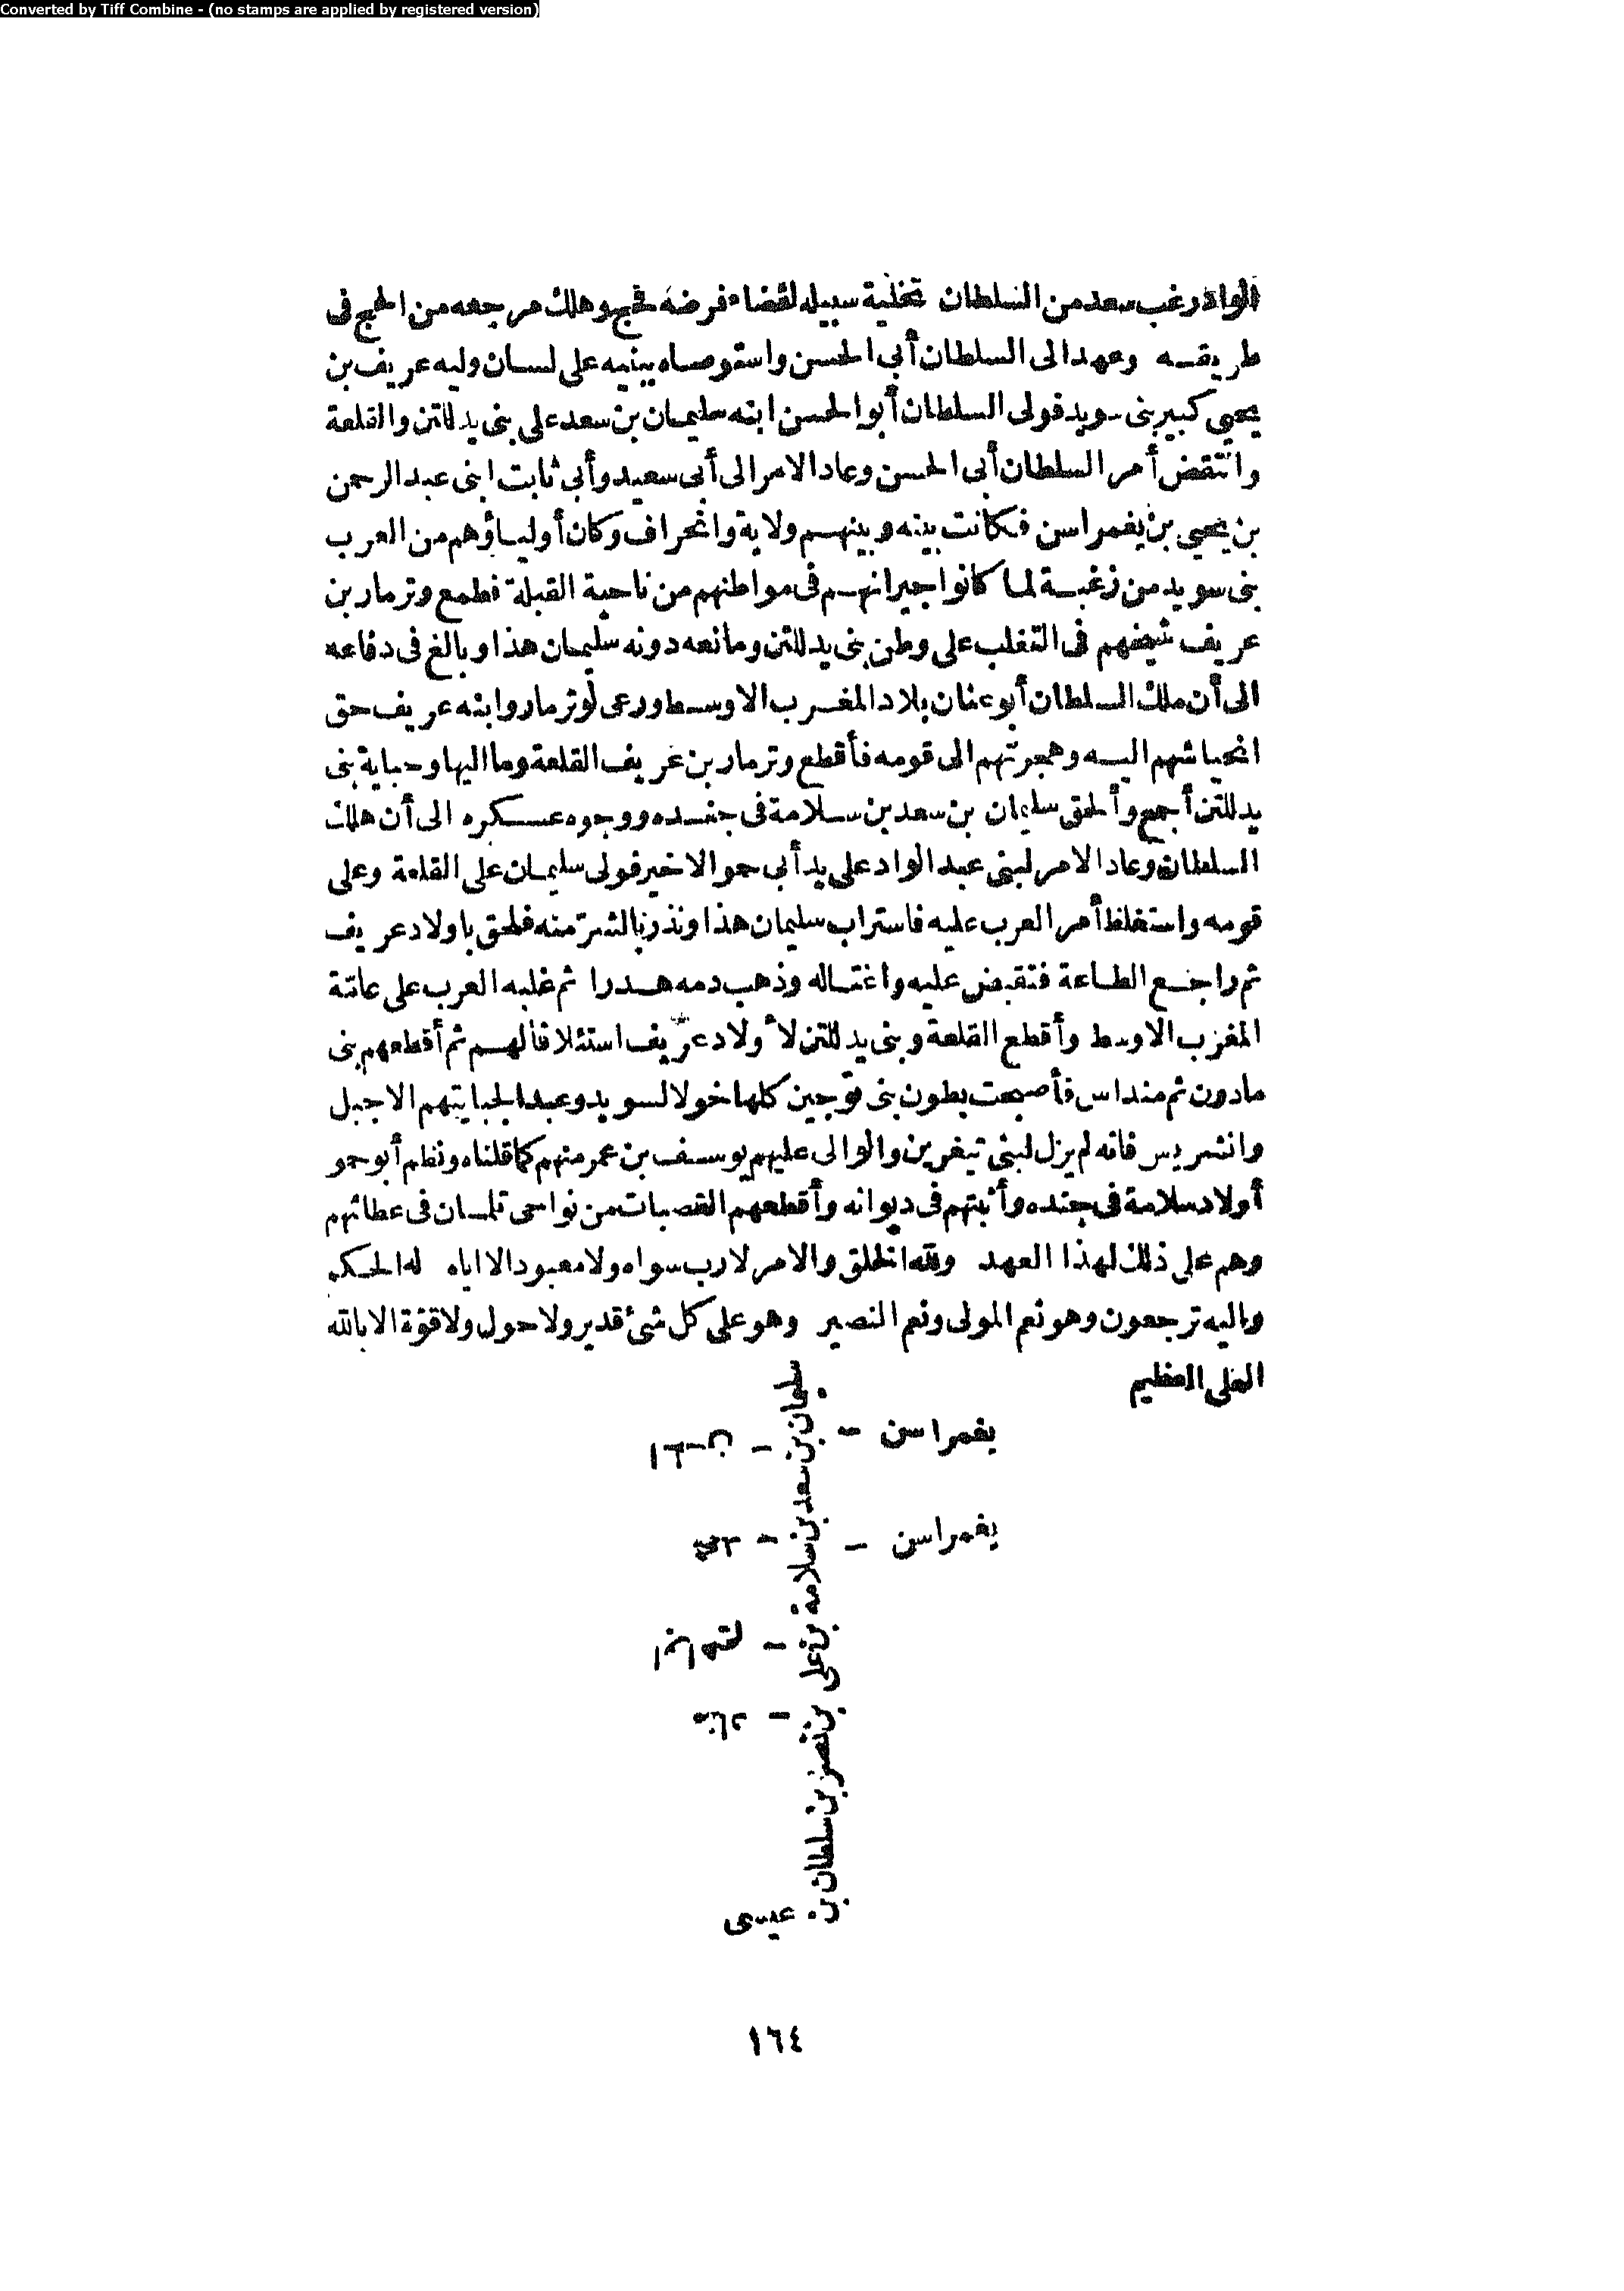 Converted by Tiff Combine - (no stamps are applied by registered version)
الواد رغب سعد من السلطان تخلية سبيله لقضاء فرضه فحج وهلك مرجعه من الحج فى
طريقه وعهد الى السلطان أبى الحسن واستوصاه ببنيه على لسان وليه عريف بن
يحيى كبير بنى سويد فولى السلطان أبو الحسن ابنه سليمان بن سعد على بنى يدللتن والقلعة
وانتقض أمر السلطان أبى الحسن وعاد الامر الى أبى سعيد وأبى ثابت ابنى عبد الرحمن
بن يحيى بن يغمراسن فكانت بينه وبينهم ولاية وانحراف وكان أولياؤهم من العرب
بنى سويد من زغبة لما كانوا جيرانهم فى مواطنهم من ناحية القبلة فطمع وترمار بن
عريف شيخهم فى التغلب على وطن بنى يدللتن ومانعه دونه سليمان هذا وبالغ فى دفاعه
الى أن ملك السلطان أبو عنان بلاد المغرب الاوسط ورعى لوترمار وابنه عريف حق
انحياشهم اليه وهجرتهم الى قومه فأقطع وترمار بن عريف القلعة وما اليها وجباية بنى
يدللتن أجمع وألحق سليمان بن سعد بن سلامة فى جنده ووجوه عسكره الى أن هلك
السلطان وعاد الامر لبنى عبد الواد على يد أبى حمو الاخير فولى سليمان على القلعة وعلى
قومه واستغلظ أمر العرب عليه فاستراب سليمان هذا ونذر بالشرّ منه فلحق باولاد عريف
ثم راجع الطاعة فتقبض عليه واغتاله وذهب دمه هدرا ثم غلبه العرب على عامّة
المغرب الاوسط وأقطع القلعة وبنى يدللتن لأولاد عريف استئلافا لهم ثم أقطعهم بنى
مادون ثم منداس فأصبحت بطون بنى توجين كلها خولا لسويد وعبدا لجبايتهم الا جبل
وانشريس فانه لم يزل لبنى تيغرين والوالى عليهم يوسف بن عمر منهم كما قلناه ونظم أبو حمو
أولاد سلامة فى جنده وأثبتهم فى ديوانه وأقطعهم القصبات من نواحى تلمسان فى عطائهم
وهم على ذلك لهذا العهد ولله الخلق والامر لا رب سواه ولا معبود الا اياه له الحكم
واليه ترجعون وهو نعم المولى ونعم النصير وهو على كل شئ قدير ولا حول ولا قوّة الا بالله
العلى العظيم
يغمراسن -
يغمراسن -
سليمان بن سعد بن سلامة بن على بن نصر بن سلطان بن عيسى
١٦٤